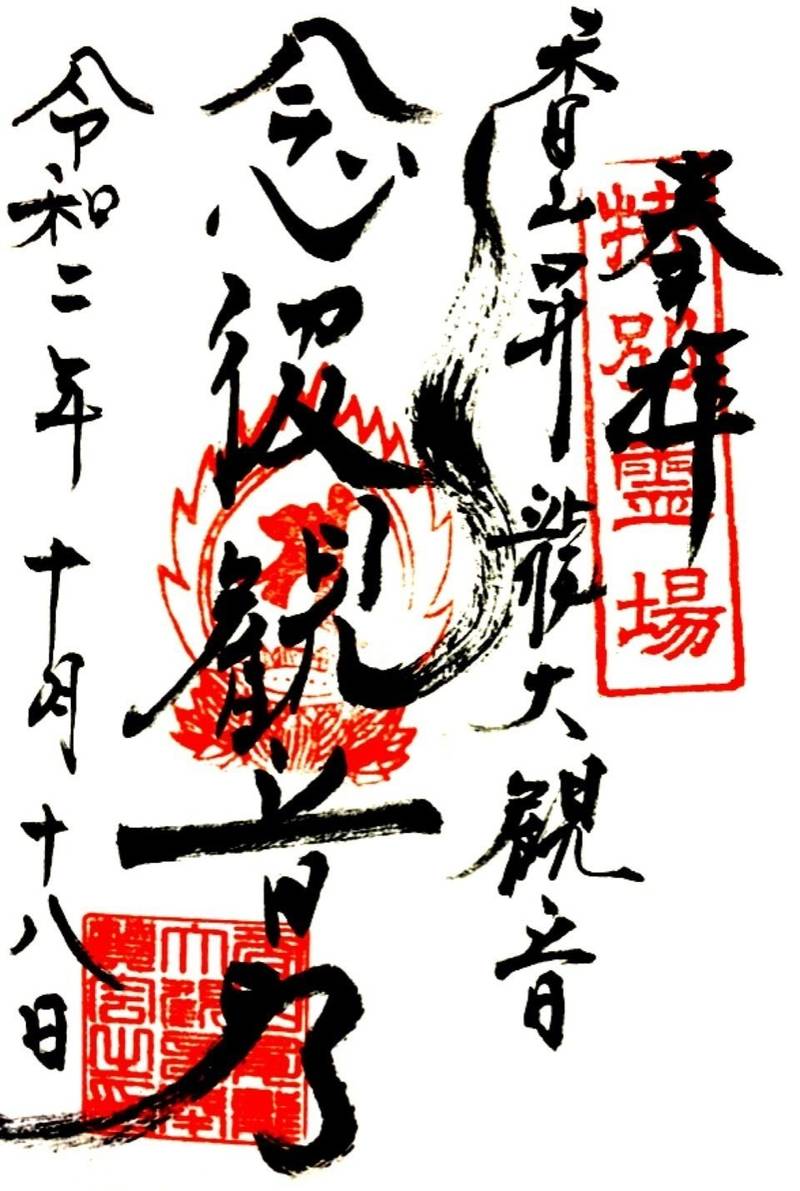 奉拝
特別霊場
香山昇龍大観音
念彼観音力
令和二年十月十八日